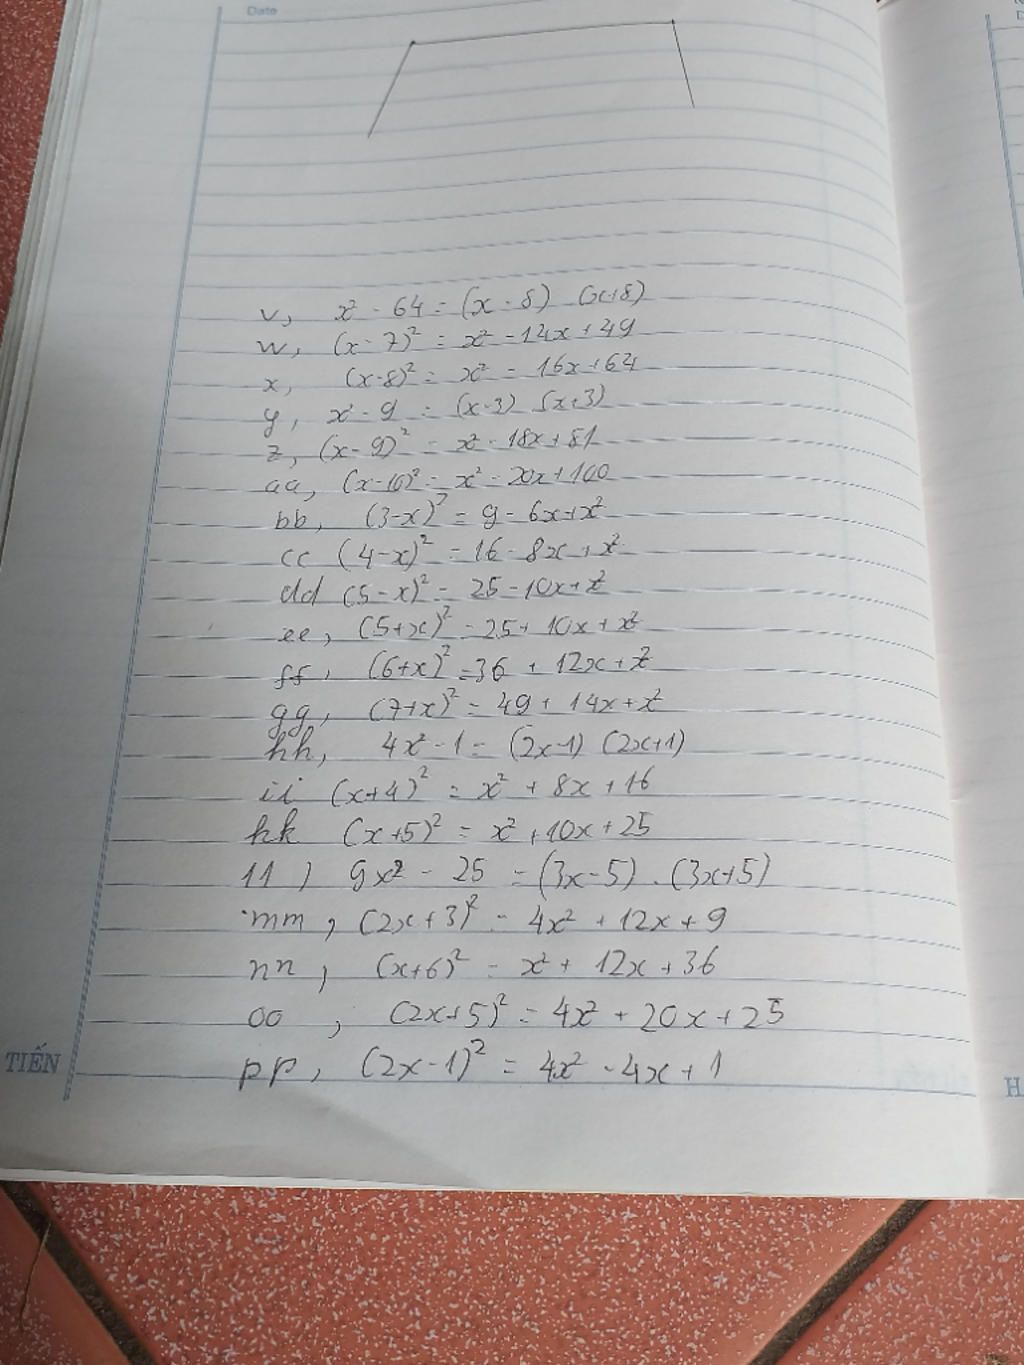 Date
v, x² - 64 = (x - 8) (x+8)
w, (x - 7)² = x² - 14x + 49
x, (x-8)² = x² = 16x+64
y, x² - 9 = (x-3) (x+3)
z, (x-9)² = x² - 18x+81
aa, (x-10)² = x² - 20x+100
bb, (3-x)² = 9 - 6x+x²
cc (4-x)² = 16 - 8x + x²
dd (5-x)² = 25 - 10x+x²
ee, (5+x)² = 25 + 10x + x²
ff, (6+x)² = 36 + 12x + x²
gg, (7+x)² = 49 + 14x+x²
hh, 4x² - 1 = (2x-1) (2x+1)
ii (x+4)² = x² + 8x + 16
kk (x+5)² = x² + 10x + 25
11 ) 9x² - 25 = (3x-5) . (3x+5)
mm, (2x+3)² = 4x² + 12x + 9
nn, (x+6)² = x² + 12x + 36
oo, (2x+5)² = 4x² + 20x + 25
TIẾN
pp, (2x-1)² = 4x² - 4x + 1
H